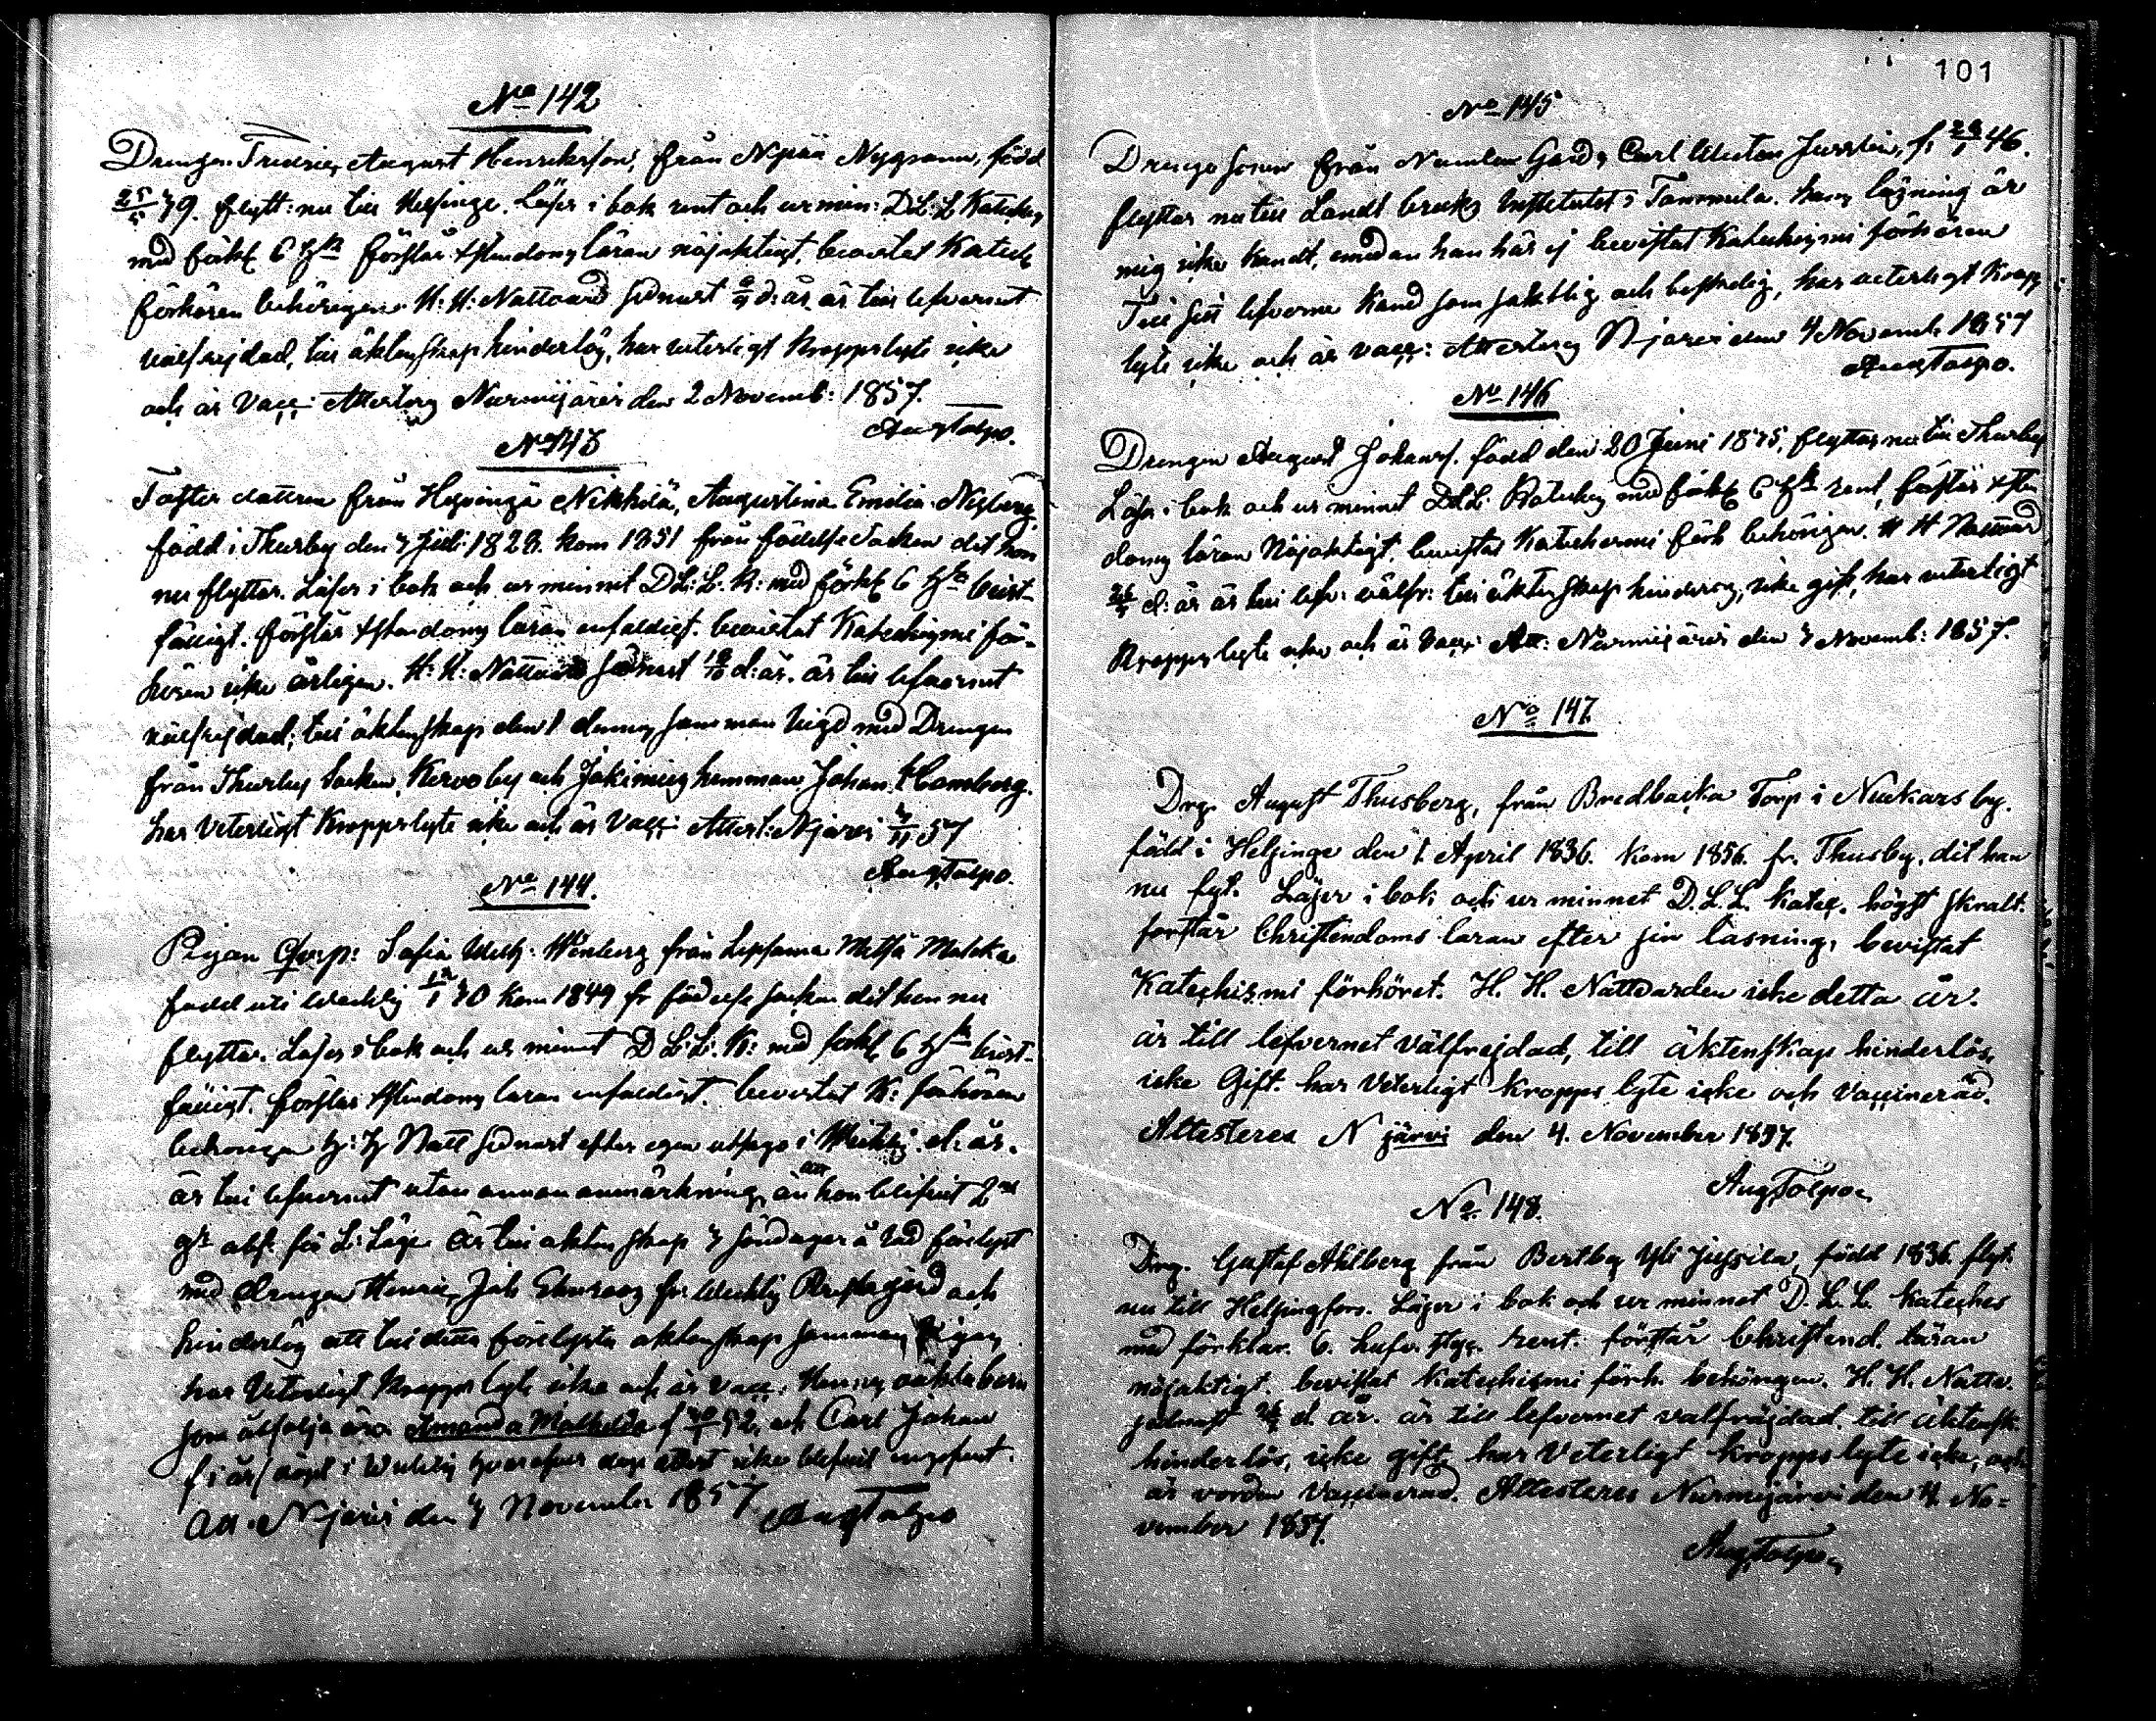 No 142
Drengen Fredric August Henriksson, från Npää Nygrann, född
25/5 39. flytt: nu till Helsinge. Läser i bok rent och ur min: D:L:L Kateches
med förkl 6 H st förstår xstendoms läran nöjaktigt, bevistat Katech
förhören behörigen. H: H: Nattvard sednast d: år, är till lefvernet
välfrejdad, till äktenskap hinderlös, har veterligt kroppslyte icke
och är Vacc: Attesteras Nurmijärvi den 2 Novemb: 1857.
Aug Talpo.
No 143
dottren från Hyvinge Nikkilä, Augustina Emilia
född i Thusby den 7 Juli 1828. kom 1851 från födelse Socken dit hon
nu flyttar. Läser i bok och ur minnet D L: L. K: med förkl 6 H st brist-
fälligt. förstår xstendoms läran enfaldigt. bevistat Katechizmi för-
hören icke årligen. H: H: Nattvard sednast d: år. är till lefvernet
välfrejdad; till äktenskap denna samman Vigd med Drengen
från Thusby Socken, Kervo by och hemman Johan Hamberg.
har Veterligt kroppslyte icke och är Vacc: Attest: Njärvi 4/11 57
Aug Talpo.
No 144.
Pigan Sofia Wilh: från Lepsama Metsä
född uti 30 kom 1849 fr födelse socken dit hon nu
flyttar. Läser i bok och ur minnet D L: L: K: med förkl 6 H st brist-
fälligt. förstår xstendoms läran enfaldigt. bevistat K: förhören
behörigen H: H Natt sednast efter egen utsago i d: år.
är till lefvernet utan annan anmärkning, än att hon blifvit 2
gr abs. för L: Läge. Är till äktenskap 3 söndagar å rad förlyst
med drengen Henric Joh och
hinderlös att till detta förelysta äktenskap samman Vigas,
har Veterligt kropps lyte icke och är Vacc: Hennes oäkta barn
som åtfölja äro Amanda Mathilda f 52, och Carl Johan
f i år döpt i attest icke blifvit
Att. Njärvi den 4 November 1857 Aug Talpo
101
No 145
Drenge sonen från Numlax Gård, Carl Justin, f: 46.
flyttar nu till Landt bruks Institutet i Tammela. hans läsning är
mig icke kändt, emedan han här ej bevistat Katechizmi förhören
Till sitt lefverne känd som saktlig och beskedlig, har veterligt kropps
lyte icke och är vacc: Attesteras Njärvi den 4 Novemb 1857
Aug Talpo.
No 146
Drengen August Johans. född den 20 Juni 1835, flyttar nu till Thusby
Läser i bok och ur minnet D:L:L: Kateches med förkl 6 H st rent, förstår xsten
doms läran Nöjaktigt. bevistat Katechismi förh behörigen. H H Nattvard
d: år är till lefv: välfr: till äktenskap hinderlös, icke gift, har veterligt
Kroppslyte icke och är Vacc: Att: Nurmijärvi den 4 Novemb: 1857.
No 147.
Drg. August Thusberg, från Bredbacka Torp i Nuckars by.
född i Helsinge den 1. April 1836. kom 1856. fr. Thusby. dit han
nu flyt. Läser i bok och ur minnet D.L.L. Katec. högst skralt.
förstår Christendoms läran efter sin läsning, bevistat
Katechismi förhöret. H. H. Nattvarden icke detta år.
är till lefvernet välfrejdad, till äktenskap hinderlös,
icke Gift. har Veterligt kropps lyte icke och Vaccinerad.
Attesteras N järvi den 4. November 1857.
Aug Talpo
No 148.
Drg. Gustaf Ahlberg från Bertby Yli Jussila, född 1836. flyt.
nu till Helsingfors. Läser i bok och ur minnet D.L.L. Kateches
med förklar. 6. hufv. styc. rent. förstår Christend. läran
nöjaktigt. bevistat Katechismi förh. behörigen. H. H. Nattv.
sednast d. år. är till lefvernet välfräjdad. till äktensk.
hinderlös, icke gift, har Veterligt kropps lyte icke, och
är vorden Vaccinerad. Attesteras Nurmijärvi den 4. No=
vember 1857.
Aug Talpo